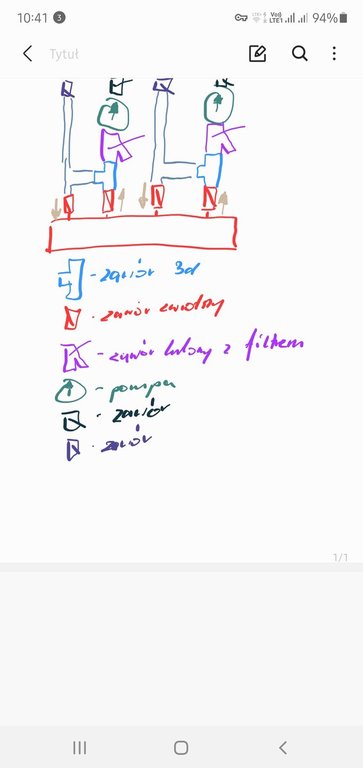 10:41 3 LTE1 94%
Tytuł
- zawór 3d
- zawór zwrotny
- zawór kulowy z filtrem
- pompa
- zawór
- zawór
1/1